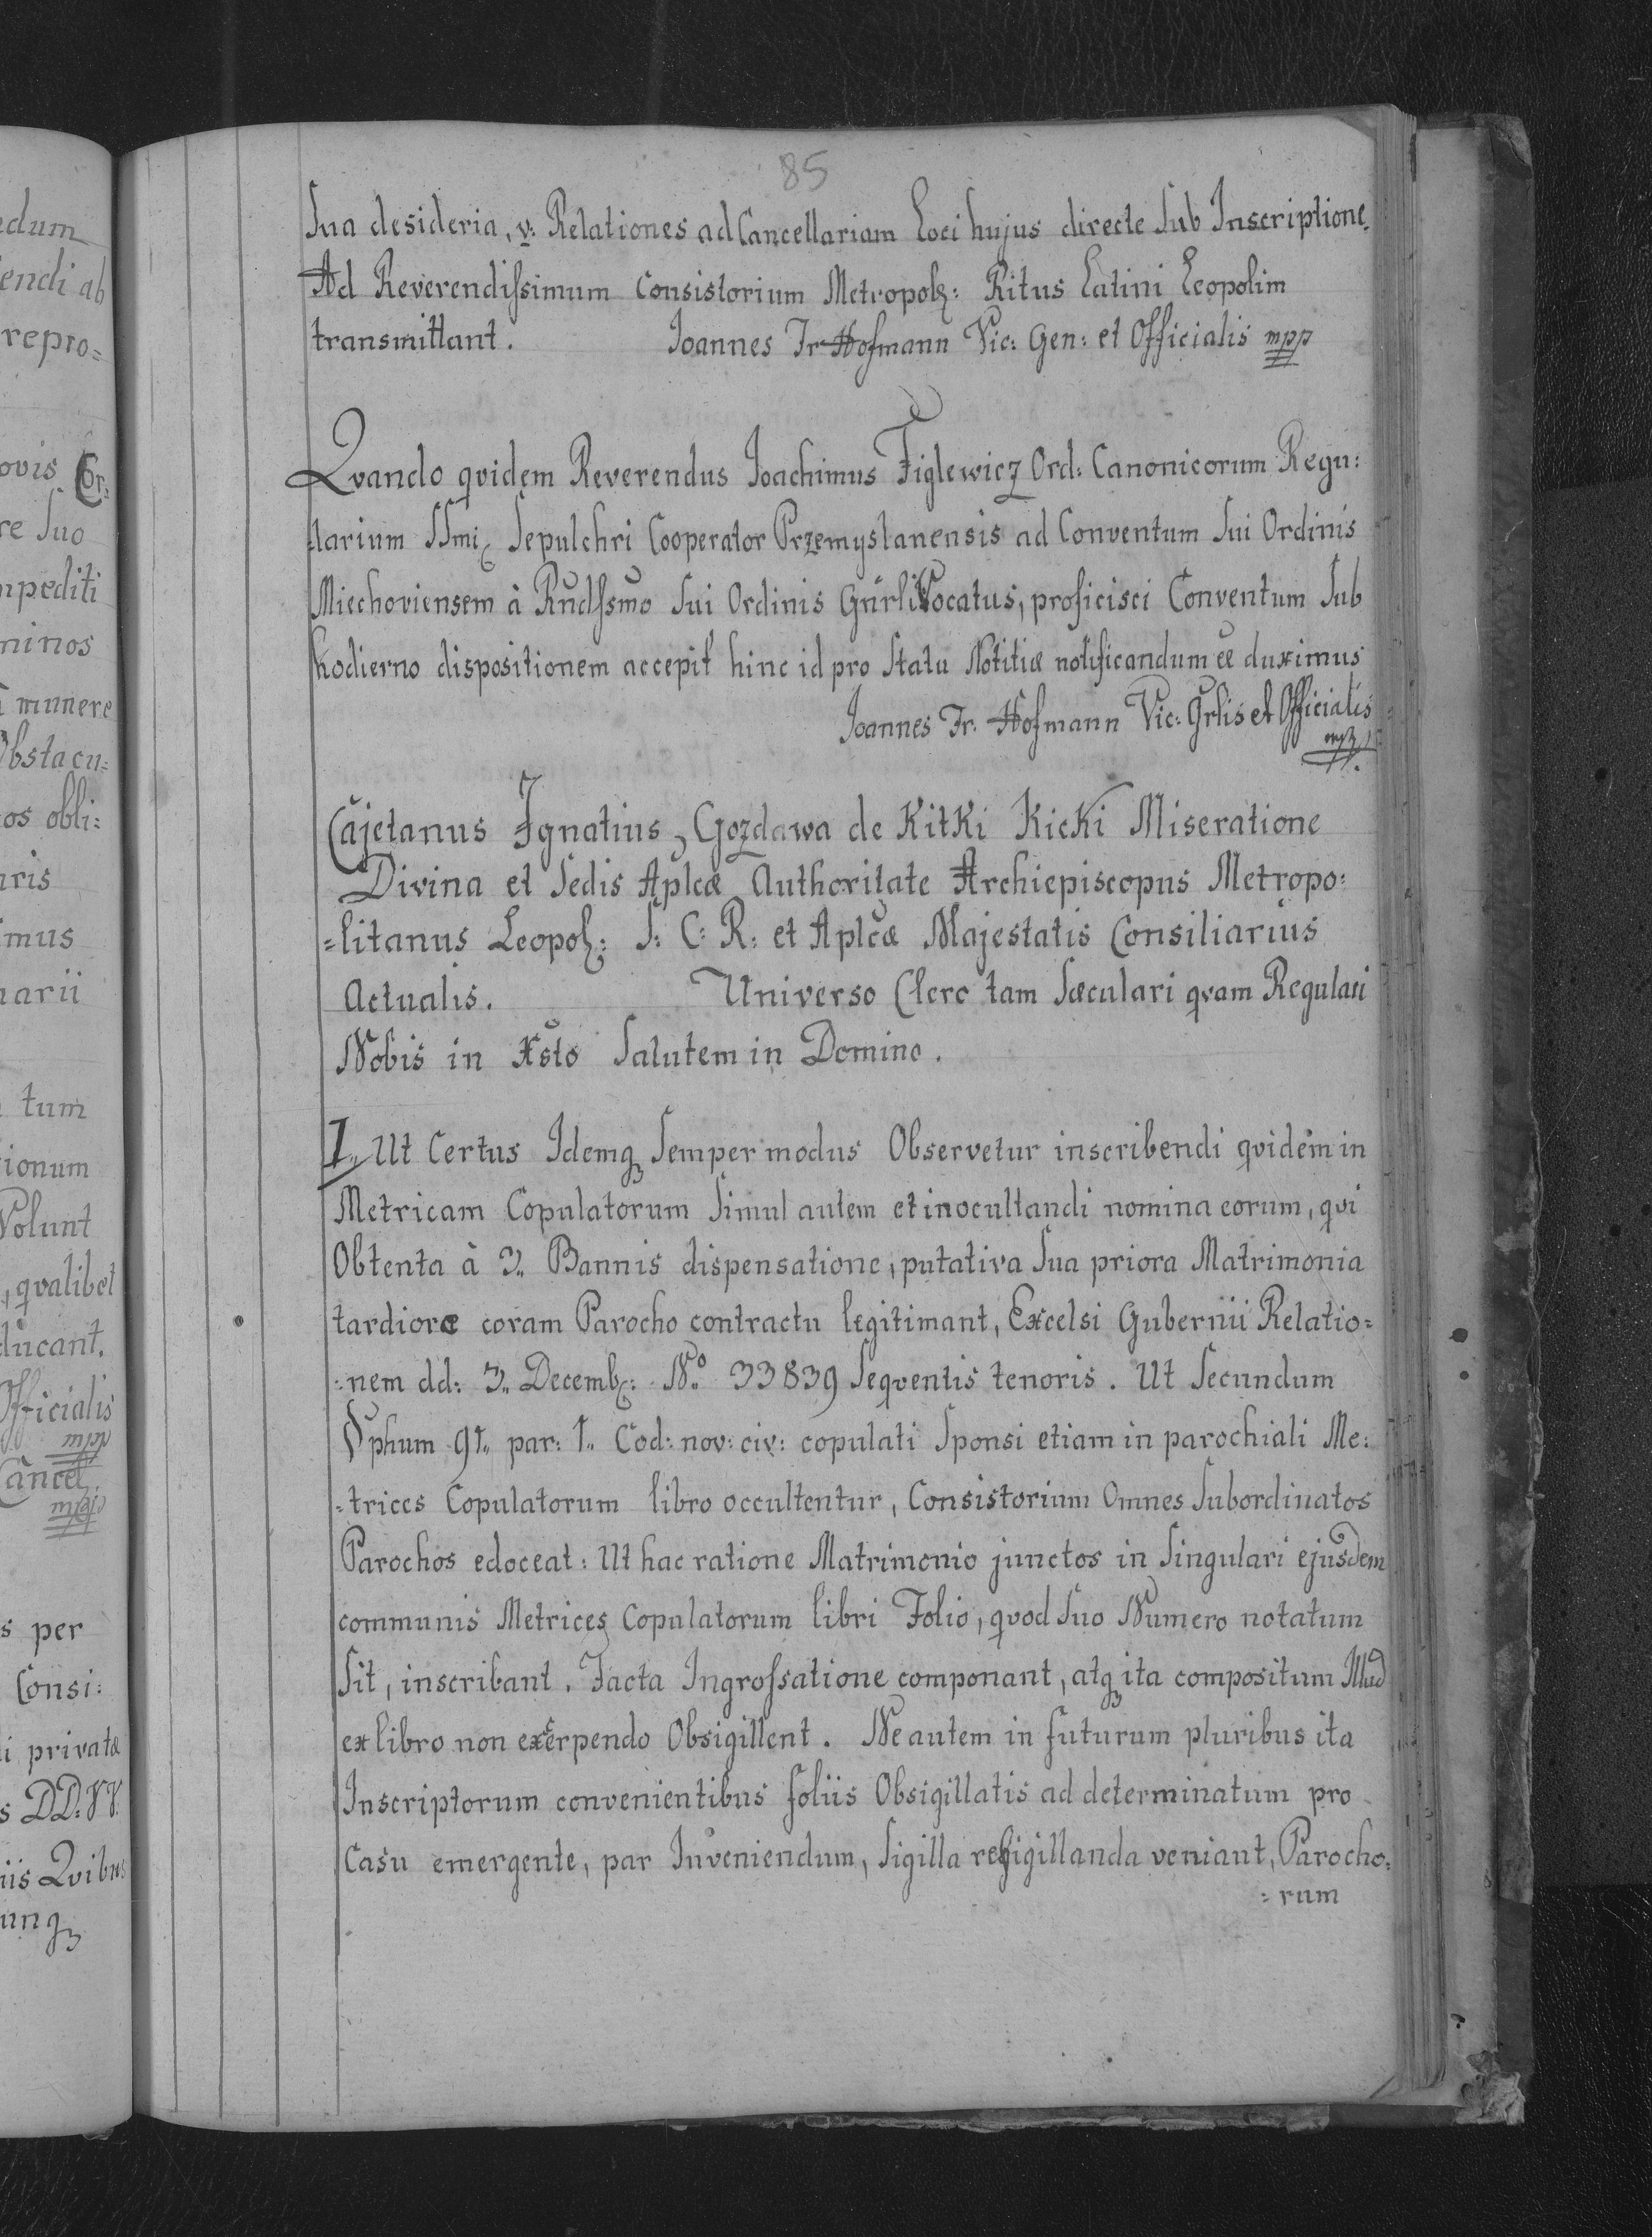 85
edum
iendi ab
repro=
ovis Cor=
re Suo
mpediti
minos
à munere
Obstacu=
cos obli:
aris
imus
narii
tum
tionum
Volunt
, qvalibet
ducant.
Officialis
mpp
Cancel
mpp
s per
Consi:
li privatæ
s DD: VV.
niis Qvibus
unqꝫ
Sua desideria, v: Relationes ad Cancellariam Loci hujus directe Sub Inscriptione.
Ad Reverendissimum Consistorium Metropol: Ritus Latini Leopolim
transmittant. Joannes Fr Hofmann Vic: Gen: et Officialis mpp
Qvando qvidem Reverendus Joachimus Figlewicz Ord: Canonicorum Regu:
=larium SSmi Sepulchri Cooperator Przemyslanensis ad Conventum Sui Ordinis
Miechoviensem à Rndssmo Sui Ordinis Gnrli Vocatus, proficisci Conventum Sub
hodierno dispositionem accepit hinc id pro Statu Notitiæ notificandum ee duximus
Joannes Fr. Hofmann Vic: Grlis et Officialis
mpp.
Cajetanus Ignatius Gozdawa de Kitki Kicki Miseratione
Divina et Sedis Aplcæ Authoritate Archiepiscopus Metropo:
=litanus Leopol: S: C: R: et Aplcæ Majestatis Consiliarius
Actualis. Universo Clero tam Sæculari qvam Regulari
Nobis in Xsto Salutem in Domino.
1,, Ut Certus Idemqꝫ Semper modus Observetur inscribendi qvidem in
Metricam Copulatorum Simul autem et inocultandi nomina eorum, qvi
Obtenta à 3,, Bannis dispensatione, putativa Sua priora Matrimonia
tardiore coram Parocho contractu legitimant, Excelsi Gubernii Relatio=
:nem dd: 3,, Decemb: No 33839 Seqventis tenoris. Ut Secundum
§phum 91,, par: 1,, Cod: nov: civ: copulati Sponsi etiam in parochiali Me:
=trices Copulatorum libro occultentur, Consistorium Omnes Subordinatos
Parochos edoceat: Ut hac ratione Matrimonio junctos in Singulari ejusdem
communis Metrices Copulatorum libri Folio, qvod Suo Numero notatum
Sit, inscribant. Facta Ingrossatione componant, atqꝫ ita compositum Illud
ex libro non excerpendo Obsigillent. Ne autem in futurum pluribus ita
Inscriptorum convenientibus foliis Obsigillatis ad determinatum pro
Casu emergente, par Inveniendum, Sigilla resigillanda veniant, Parocho:
=rum